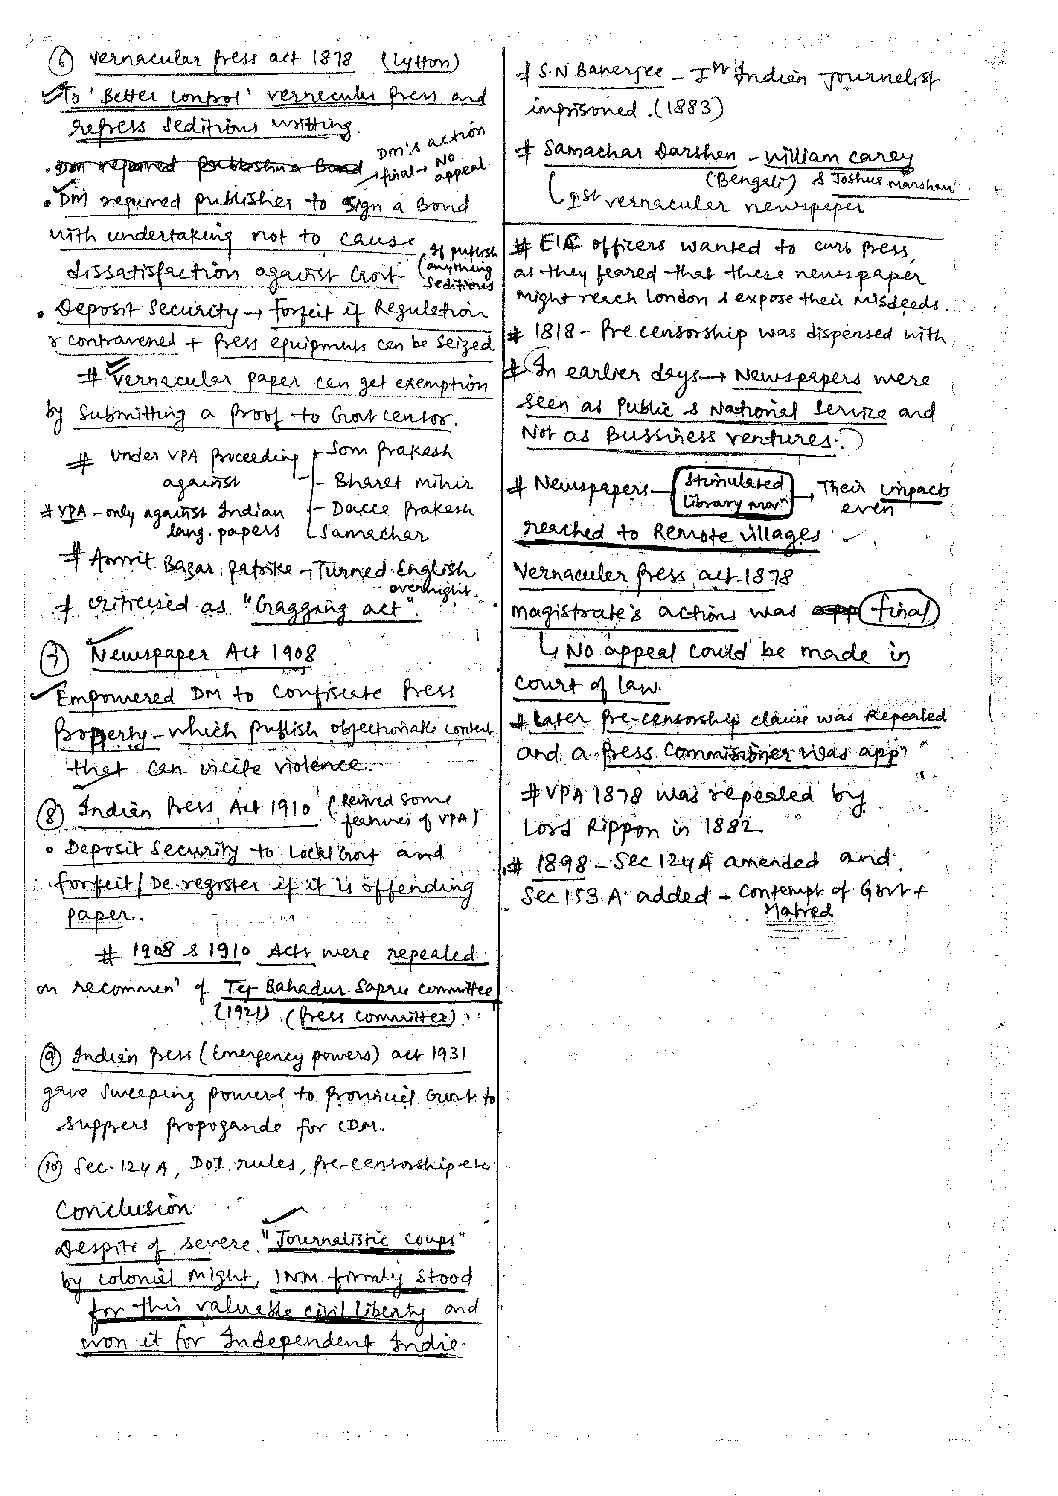 ⑥ Vernacular Press act 1878 (Lytton)
To 'Better control' vernecular press and
repress seditious writting.
DM's action
final → No
appeal
• DM required publisher to sign a Bond
with undertaking not to cause
dissatisfaction against Govt
(If publish
anything
seditious
• Deposit Security → forfeit if Regulation
contravened + Press equipments can be seized
# Vernacular paper can get exemption
by submitting a proof to Govt censor.
# Under VPA proceeding
against
- Som Prakash
- Bharat Mihir
- Dacca Prakash
- Samachar
# VPA - only against Indian
lang. papers
# Amrit Bazar Patrike - Turned English
overnight.
# critcised as "Gagging act".
⑦ Newspaper Act 1908
Empowered DM to confiscate Press
Property - which publish objectionable content
that can incite violence.
⑧ Indian Press Act 1910 (Revived some
features of VPA)
• Deposit Security to Local Govt and
forfeit / De-register if it is offending
paper.
# 1908 & 1910 Acts were repealed
on recommen' of Tej Bahadur Sapru committee
(1921) (Press Committee)
⑨ Indian press (Emergency powers) act 1931
gave sweeping powers to provincial Govt to
suppress propogande for CDM.
⑩ Sec. 124 A, DOI rules, Pre-censorship etc
Conclusion
Despite of severe "Journalistic coups"
by colonial might, INM firmaly stood
for this valuable civil liberty and
won it for Independent Indie.
# S.N Banerjee - Ist Indian Journelist
imprisoned. (1883)
# Samachar Darshen - William Carey
(Bengali) & Joshua Marshan
Ist vernacular newspaper
# EIC officers wanted to curb press,
as they feared that these newspaper
might reach London & expose their misdeeds.
# 1818 - Pre censorship was dispensed with
# (In earlier days → Newspapers were
seen as Public & National Service and
Not as Bussiness ventures.)
# Newspapers - Stimulated
Library mov'
→ Their impact
even
reached to Remote villages
Vernaculer Press act-1878
magistrate's actions was final
↳ No appeal could be made in
court of law.
# Later Pre-censorship clause was Repealed
and a Press Commissioner was app'
# VPA 1878 was repealed by
Lord Rippon in 1882
# 1898 - Sec 124 A amended and
Sec 153 A added - contempt of Govt +
Hatred